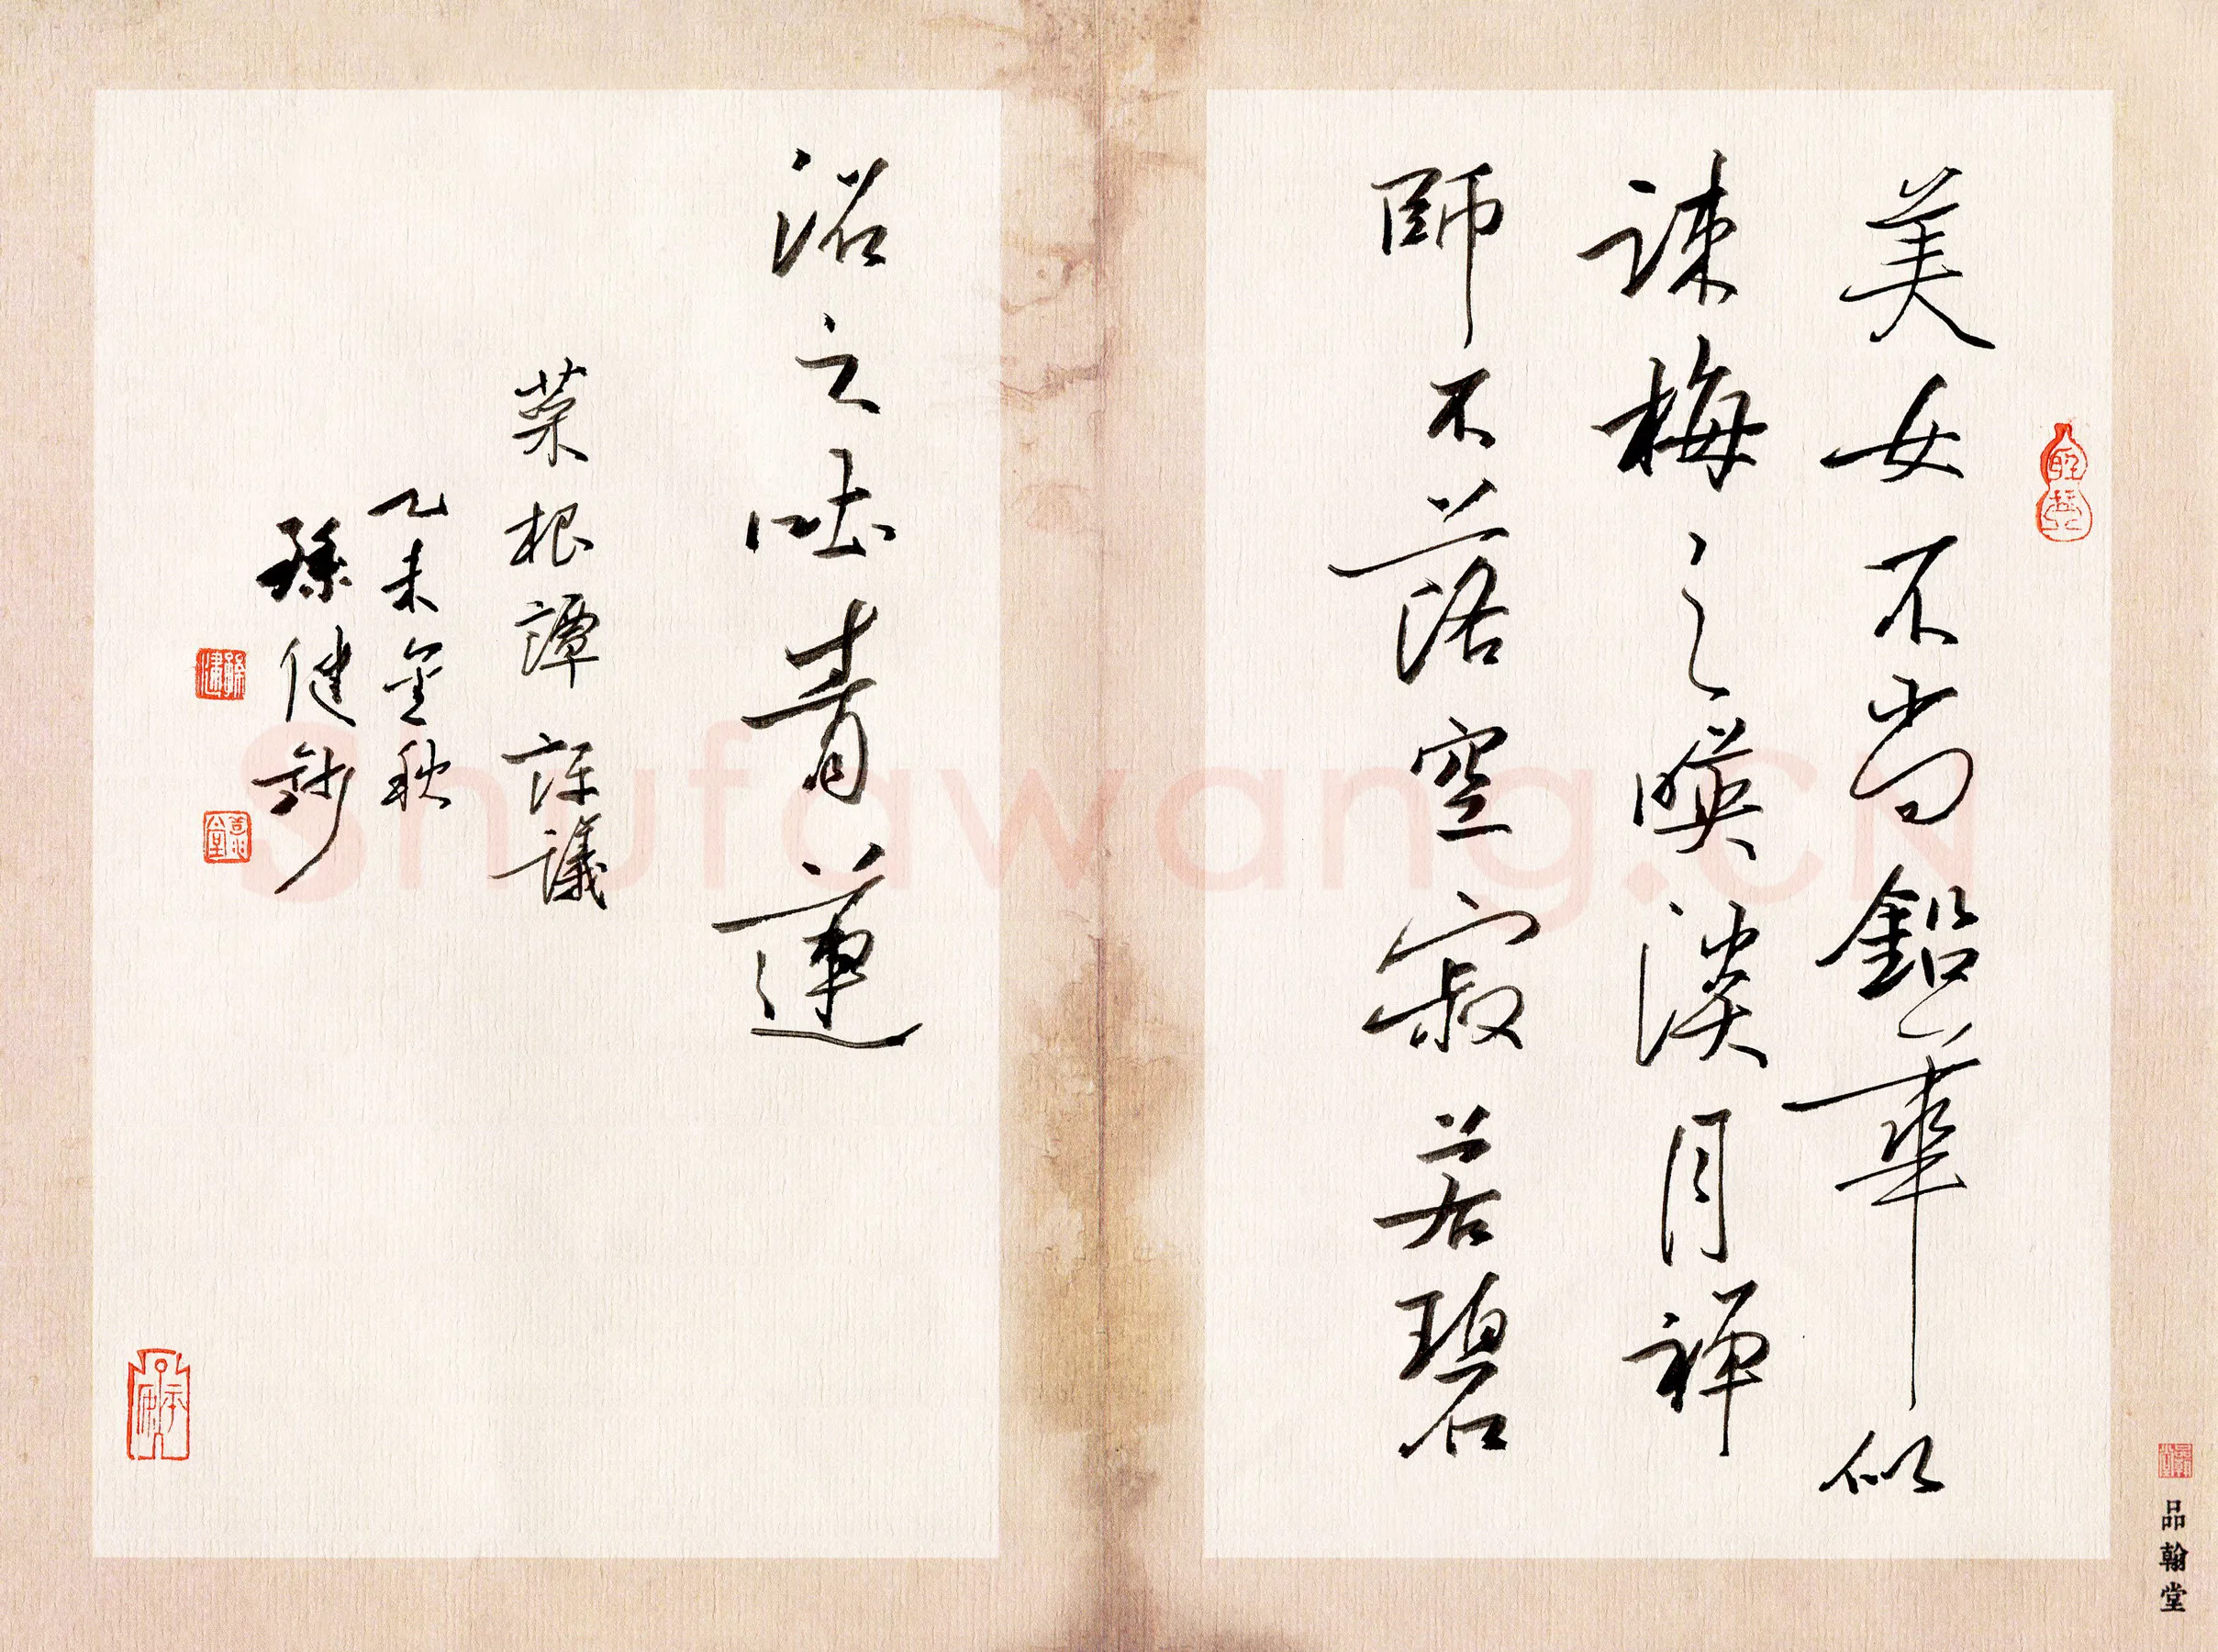 美女不尚鉛華似
疎梅之映淡月禅
師不落空寂若碧
沼之吐青蓮
菜根譚評議
乙未金秋
孫健鈔
品翰堂
Shufawang.CN